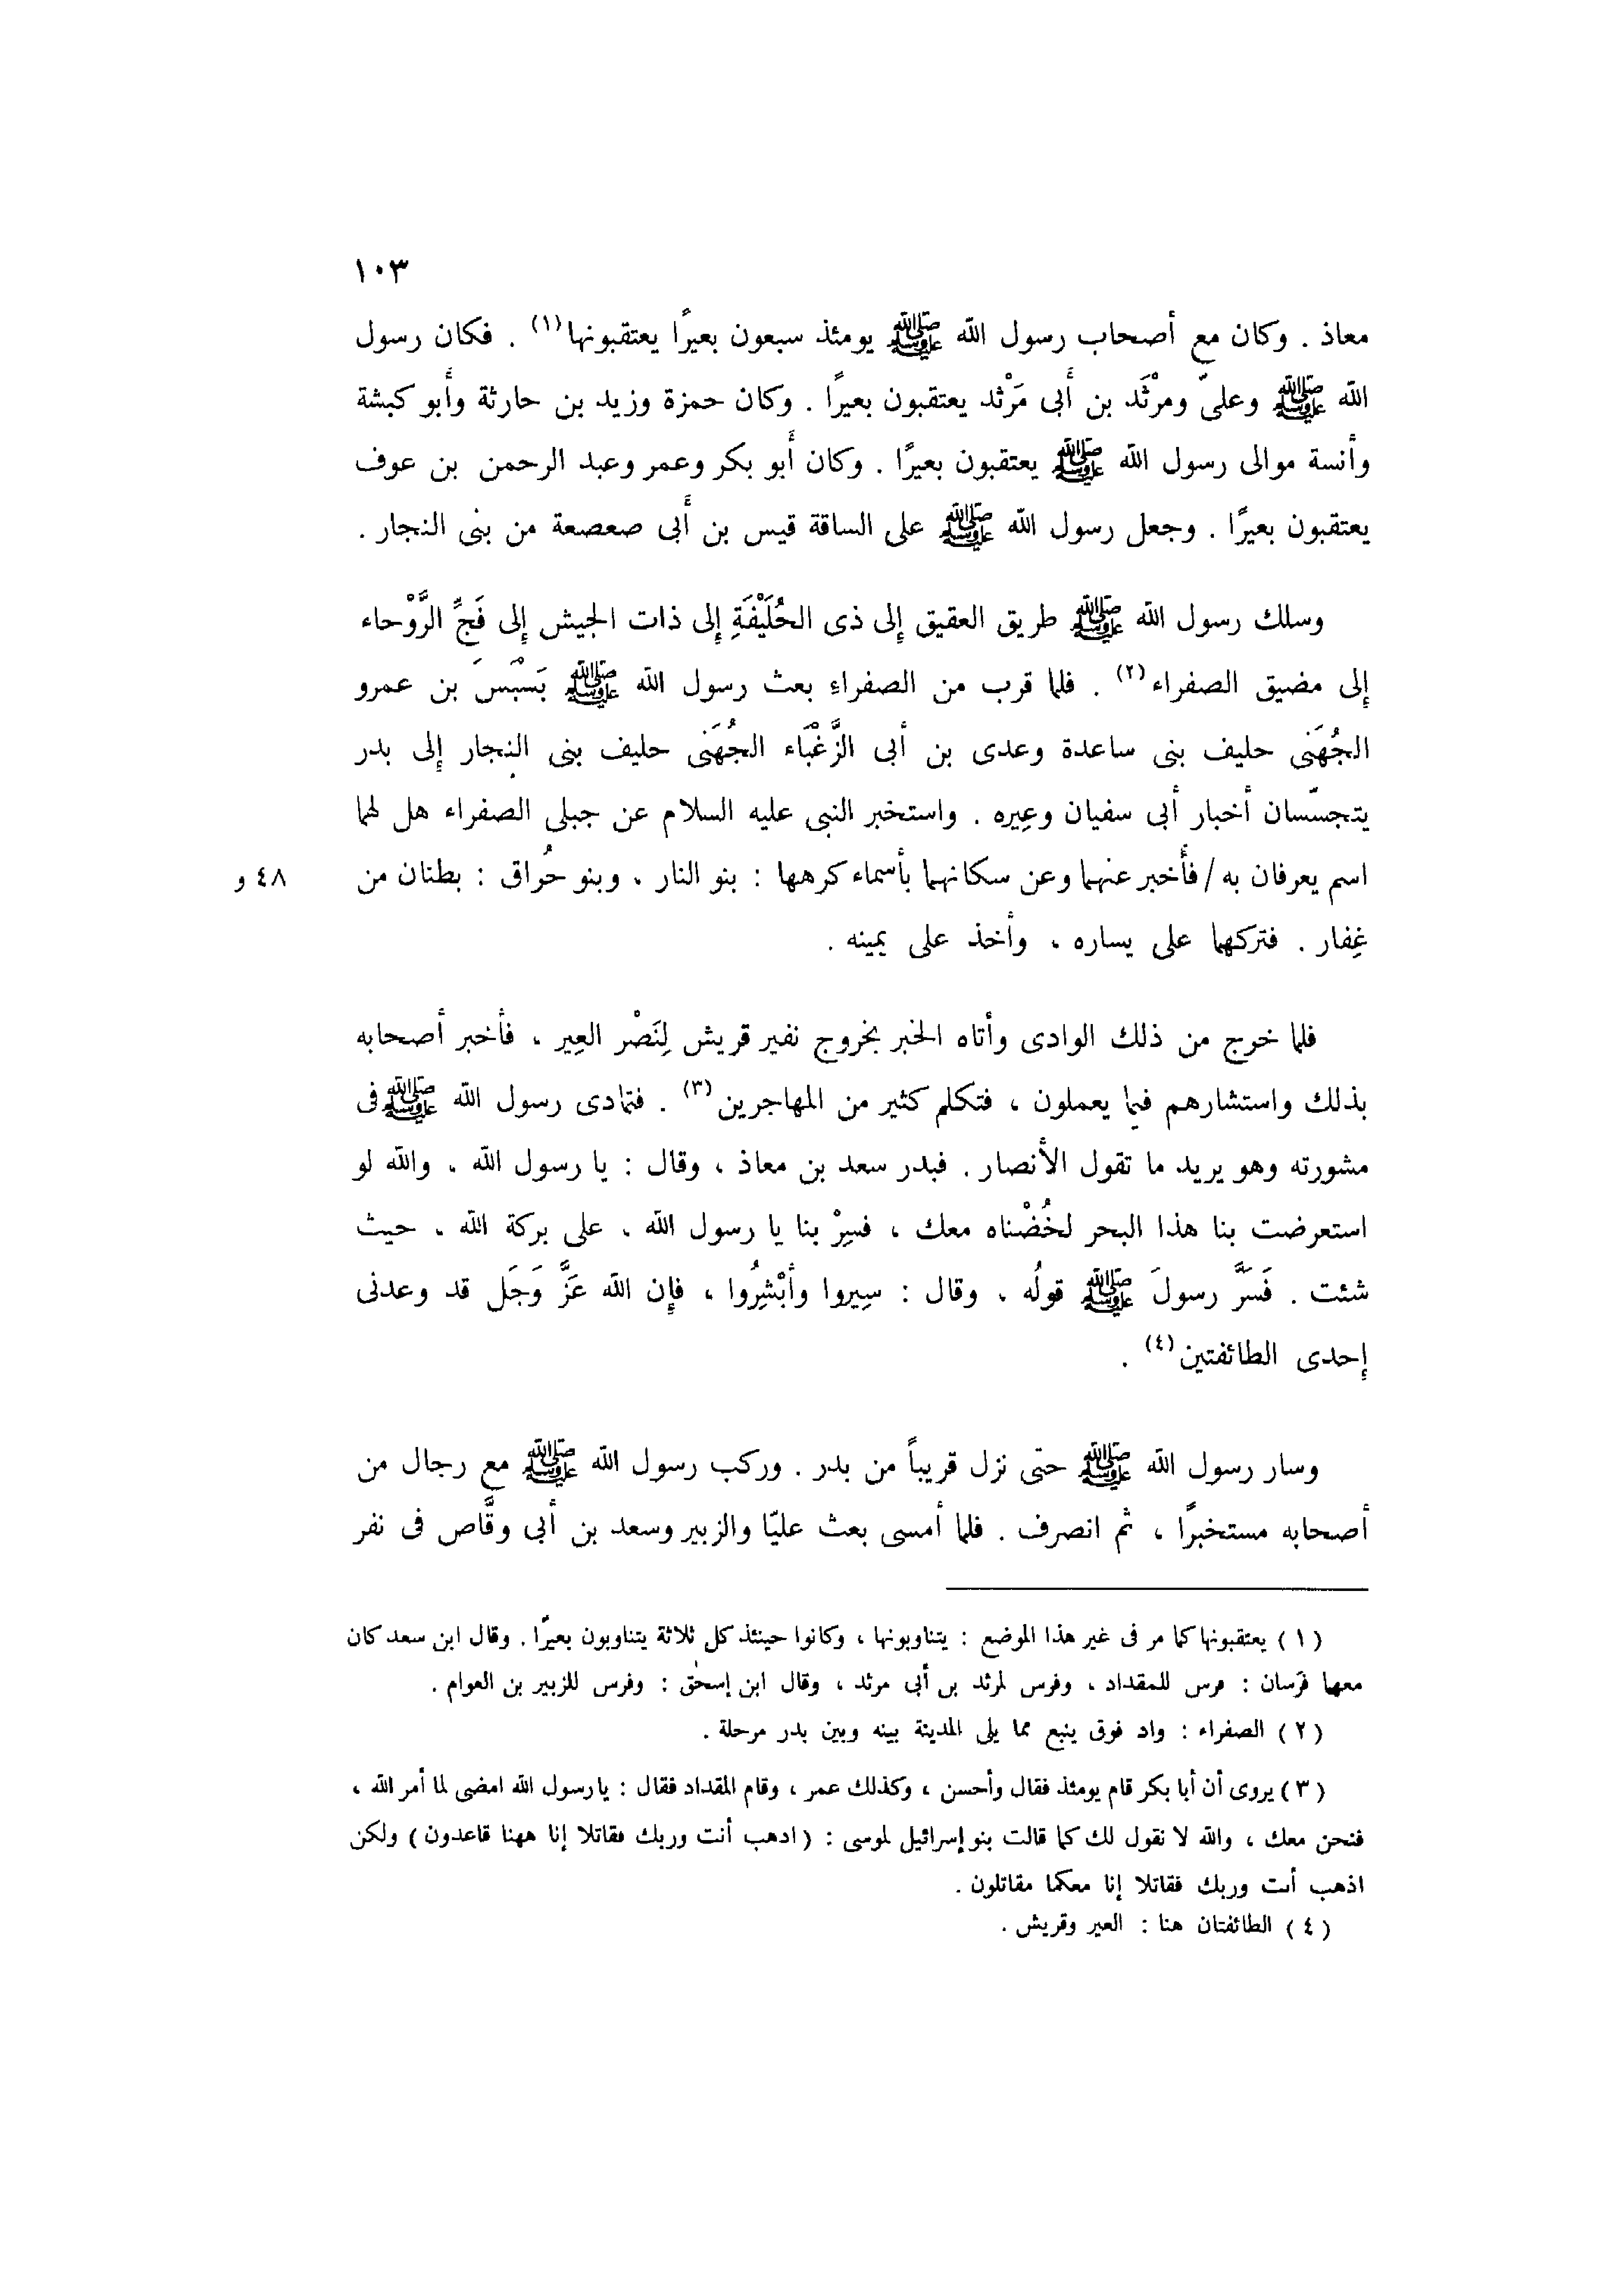 ١٠٣
معاذ . وكان مع أصحاب رسول الله ﷺ يومئذ سبعون بعيرًا يعتقبونها(١) . فكان رسول
الله ﷺ وعلىّ ومرْثَد بن أبى مَرْثد يعتقبون بعيرًا . وكان حمزة وزيد بن حارثة وأبو كبشة
وأنسة موالى رسول الله ﷺ يعتقبون بعيرًا . وكان أبو بكر وعمر وعبد الرحمن بن عوف
يعتقبون بعيرًا . وجعل رسول الله ﷺ على الساقة قيس بن أبى صعصعة من بنى النجار .
وسلك رسول الله ﷺ طريق العقيق إلى ذى الحُلَيْفَةِ إلى ذات الجيش إلى فَجِّ الرَّوْحاء
إلى مضيق الصفراء(٢) . فلما قرب من الصفراءِ بعث رسول الله ﷺ بَسْبَسَ بن عمرو
الجُهَنى حليف بنى ساعدة وعدى بن أبى الزَّغْبَاء الجُهَنى حليف بنى النجار إلى بدر
يتجسّسان أخبار أبى سفيان وعِيره . واستخبر النبى عليه السلام عن جبلى الصفراء هل لهما
اسم يعرفان به / فأخبر عنهما وعن سكانهما بأسماء كرهها : بنو النار ، وبنو حُراق : بطنان من
٤٨ و
غِفار . فتركهما على يساره ، وأخذ على يمينه .
فلما خرج من ذلك الوادى وأتاه الخبر بخروج نفير قريش لِنَصْر العِير ، فأخبر أصحابه
بذلك واستشارهم فيما يعملون ، فتكلم كثير من المهاجرين(٣) . فتمادى رسول الله ﷺ فى
مشورته وهو يريد ما تقول الأنصار . فبدر سعد بن معاذ ، وقال : يا رسول الله ، والله لو
استعرضت بنا هذا البحر لخُضْناه معك ، فسِرْ بنا يا رسول الله ، على بركة الله ، حيث
شئت . فَسَرَّ رسولَ ﷺ قولُه ، وقال : سِيروا وأَبْشِرُوا ، فإن الله عَزَّ وَجَل قد وعدنى
إحدى الطائفتين(٤) .
وسار رسول الله ﷺ حتى نزل قريباً من بدر . وركب رسول الله ﷺ مع رجال من
أصحابه مستخبرًا ، ثم انصرف . فلما أمسى بعث عليّا والزبير وسعد بن أبى وقَّاص فى نفر
(١) يعتقبونها كما مر فى غير هذا الموضع : يتناوبونها ، وكانوا حينئذ كل ثلاثة يتناوبون بعيرًا . وقال ابن سعد كان
معها فرسان : فرس للمقداد ، وفرس لمرثد بن أبى مرثد ، وقال ابن إسحٰق : وفرس للزبير بن العوام .
(٢) الصفراء : واد فوق ينبع مما يلى المدينة بينه وبين بدر مرحلة .
(٣) يروى أن أبا بكر قام يومئذ فقال وأحسن ، وكذلك عمر ، وقام المقداد فقال : يا رسول الله امضى لما أمر الله ،
فنحن معك ، والله لا نقول لك كما قالت بنو إسرائيل لموسى : (ادهب أنت وربك فقاتلا إنا ههنا قاعدون) ولكن
اذهب أنت وربك فقاتلا إنا معكما مقاتلون .
(٤) الطائفتان هنا : العير وقريش .